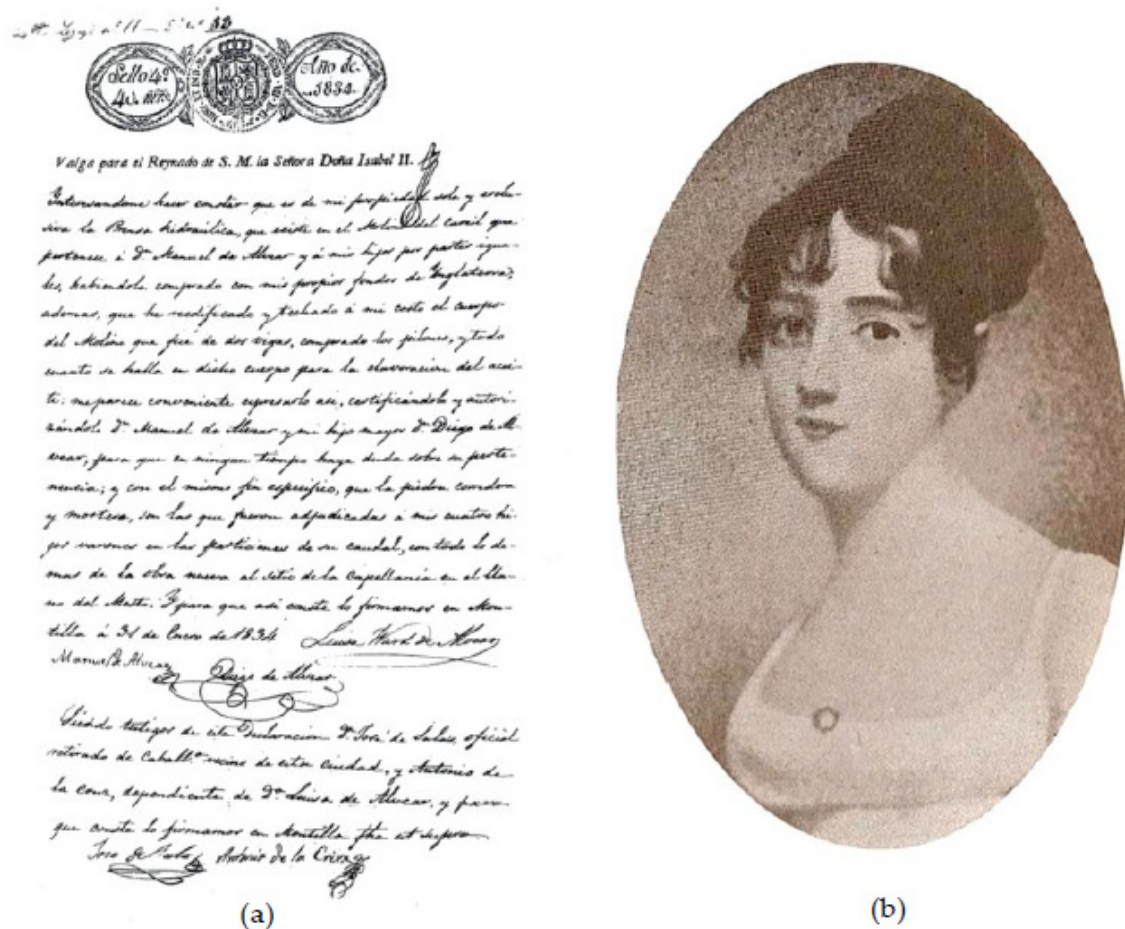 Sello 4º
40 mrs
Año de
1834.
Valga para el Reynado de S. M. la Señora Doña Isabel II.
Interesandome hacer constar que es de mi propiedad sola y esclu-
siva la Prensa hidraulica, que existe en el Molino del carril que
pertenece á Dn. Manuel de Alvear y á mis hijos por partes igua-
les, habiendola comprado con mis propios fondos de Inglaterra;
ademas, que he reedificado y techado á mi costo el cuerpo
del Molino que fue de dos vigas, comprado los pilones, y todo
cuanto se halla en dicho cuerpo para la elavoracion del acei-
te: me parece conveniente espresarlo asi, certificándolo y autori-
zándolo Dn. Manuel de Alvear y mi hijo mayor Dn. Diego de Al-
vear, para que en ningun tiempo haya duda sobre su perte-
nencia; y con el mismo fin especifico, que la piedra corredora
y mortera, son las que fueron adjudicadas á mis cuatro hi-
jos varones en las particiones de su caudal, con todo lo de-
mas de la obra nueva al sitio de la Capellania en el Lla-
no del Mesto. Y para que asi conste lo firmamos en Mon-
tilla á 31 de Enero de 1834 Luisa Ward de Alvear
Manuel de Alvear Diego de Alvear
Siendo testigos de esta Declaracion Dn. José de Salas, oficial
retirado de Caballa. vecino de esta Ciudad, y Antonio de
la Cruz, dependiente de Da. Luisa de Alvear, y para
que conste lo firmamos en Montilla fha ut supra
José de Salas Antonio de la Cruz
(a)
(b)